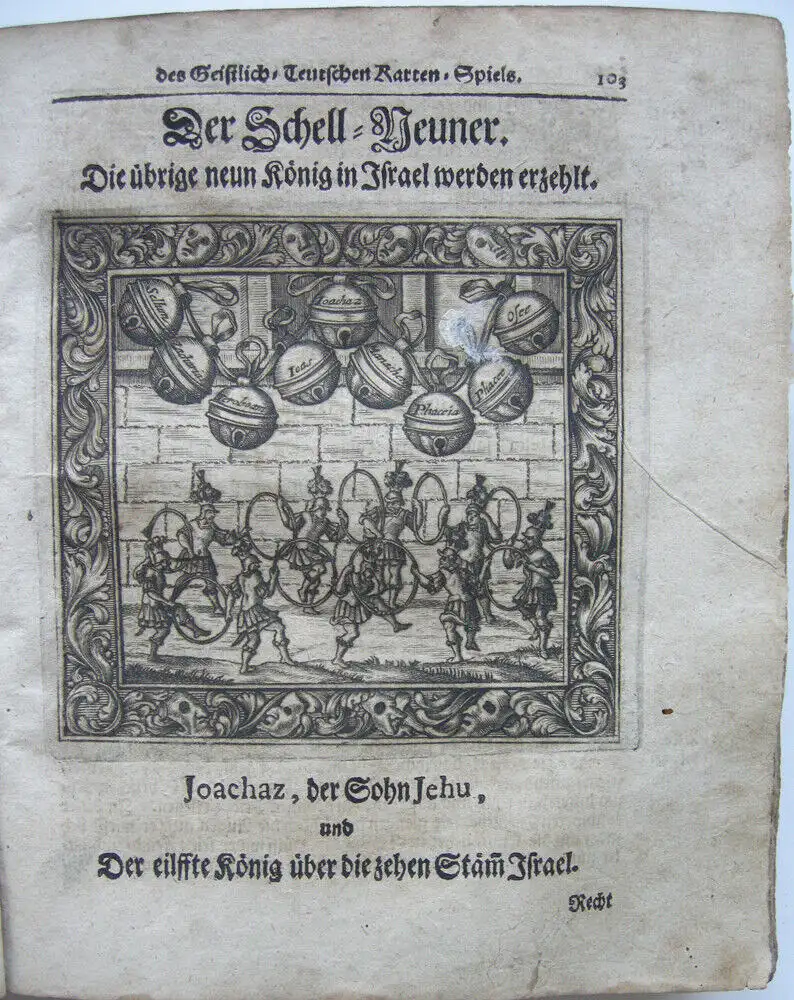 des Geistlich-Teutschen Karten-Spiels. 103
Der Schell-Neuner.
Die übrige neun König in Israel werden erzehlt.
Sellum
Joachaz
Osee
Joas
Phacee
Phaceia
Joachaz, der Sohn Jehu,
und
Der eilffte König über die zehen Stäm̃ Israel.
Recht